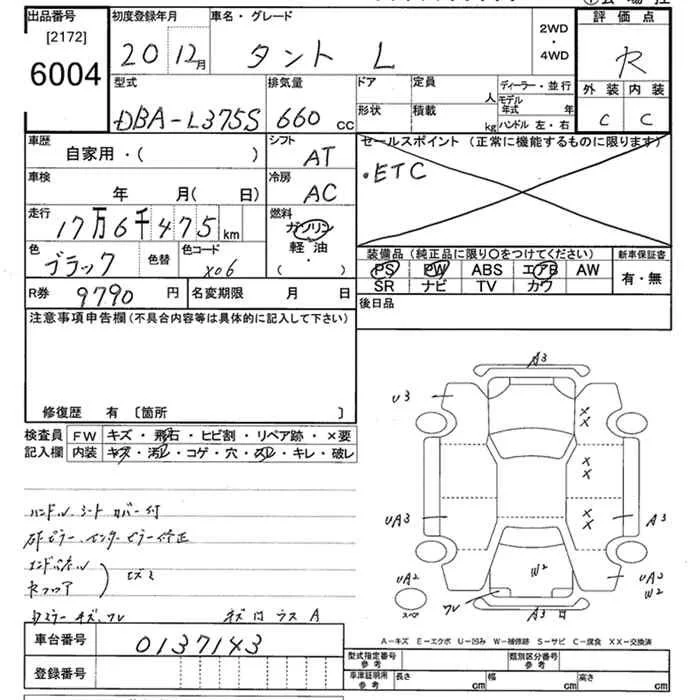 出品番号
[2172]
6004
初度登録年月
20 12月
車名・グレード
タント L
2WD
・
4WD
評価点
R
外装 内装
C C
型式
DBA-L375S
排気量
660 cc
ドア
定員
人
形状
積載
kg
ディーラー・並行
モデル年式 年
ハンドル 左・右
車歴
自家用・( )
シフト
AT
セールスポイント (正常に機能するものに限ります)
・ETC
車検
年 月( 日)
冷房
AC
走行
17万6千475km
燃料
ガソリン
軽油
・
( )
色
ブラック
色替
色コード
X06
装備品 (純正品に限り○をつけてください)
新車保証書
PS PW ABS エアB AW
SR ナビ TV カワ
有・無
R券
9790円
名変期限 月 日
後日品
注意事項申告欄 (不具合内容等は具体的に記入して下さい)
修復歴 有 〔箇所 〕
検査員
記入欄
FW キズ・飛石・ヒビ割・リペア跡・×要
内装 キズ・汚れ・コゲ・穴・スレ・キレ・破レ
ハンドル シートカバー付
センターピラー修正
エンドパネル
フロア
キズ
A3
U3
X
X
X
X
X
X
UA3
A3
UA2
W2
W2
A3
スペア
A-キズ E-エクボ U-凹み W-補修跡 S-サビ C-腐食 XX-交換済
車台番号
0137143
登録番号
型式指定番号
参考
類別区分番号
参考
車津証明用
参考
長さ cm
幅 cm
高さ cm